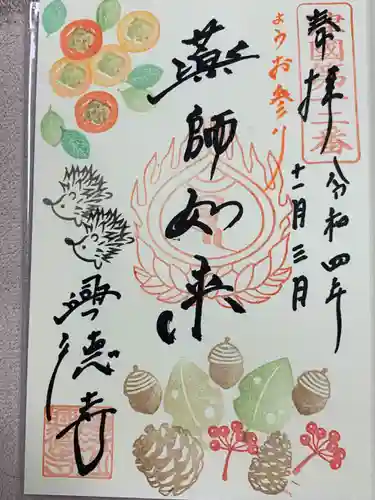 奉拝
令和四年
十一月三日
ようお参り
薬師如来
興徳寺